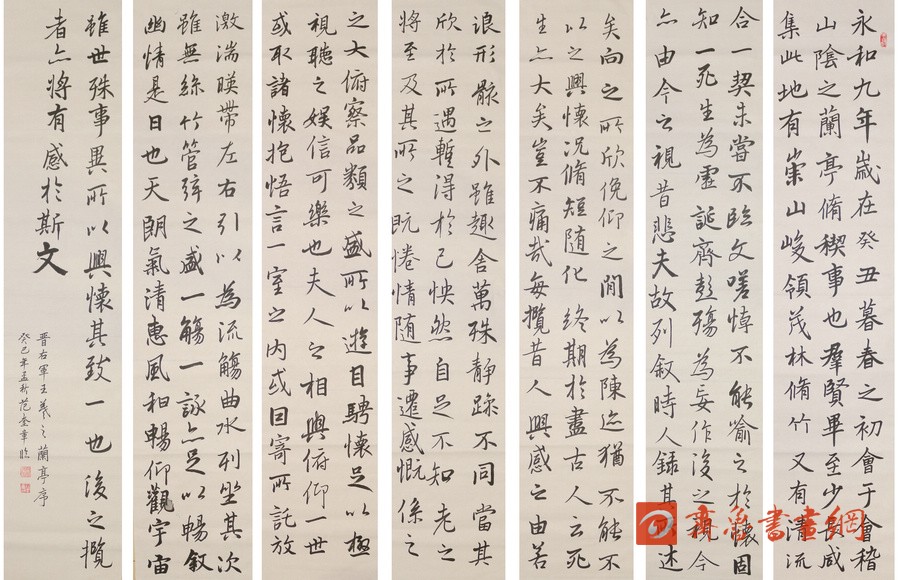 永和九年歲在癸丑暮春之初會于會稽
山陰之蘭亭脩稧事也羣賢畢至少長咸
集此地有崇山峻領茂林脩竹又有清流
合一契未嘗不臨文嗟悼不能喻之於懷固
知一死生為虛誕齊彭殤為妄作後之視今
亦由今之視昔悲夫故列敘時人錄其所述
矣向之所欣俛仰之間以為陳迹猶不能不
以之興懷況脩短随化終期於盡古人云死
生亦大矣豈不痛哉每攬昔人興感之由若
浪形骸之外雖趣舍萬殊静躁不同當其
欣於所遇暫得於己怏然自足不知老之
將至及其所之既惓情随事遷感慨係之
之大俯察品類之盛所以遊目騁懷足以極
視聽之娛信可樂也夫人之相與俯仰一世
或取諸懷抱悟言一室之內或因寄所託放
激湍暎帶左右引以為流觴曲水列坐其次
雖無絲竹管弦之盛一觴一詠亦足以暢敘
幽情是日也天朗氣清惠風和暢仰觀宇宙
雖世殊事異所以興懷其致一也後之攬
者亦將有感於斯文
晉右軍王羲之蘭亭序
癸巳年孟秋范奎章臨
齊魯書畫網